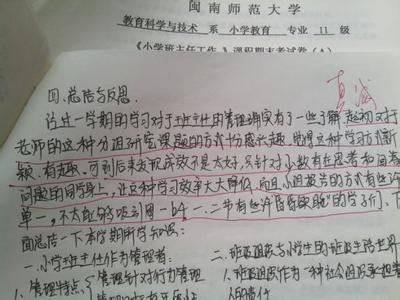 闽南师范大学
教育科学与技术 系 小学教育 专业 11 级
《小学班主任工作》课程期末考试卷(A)
真诚
四、总结与反思
经过一学期的学习对于班主任的管理确实有了一些了解,起初对于
老师的这种分组研究课题的方式十分感兴趣,觉得这种学习方式新
颖、有趣,可到后来发现成效不是太好,只针对小数有在思考和回答
问题的同学身上,让这种学习效率大大降低,而且小组报告的方式有些许
单一,不太能够吸引周一b4、一二节有些许昏昏欲睡的学子们,下
面总结一下本学期所学知识:
一、小学班主任作为管理者: 二、班级组织与小学生的班级生活世界
1.管理特点 管理针对行为管理 1.班级组织作为一种社会组织承担着